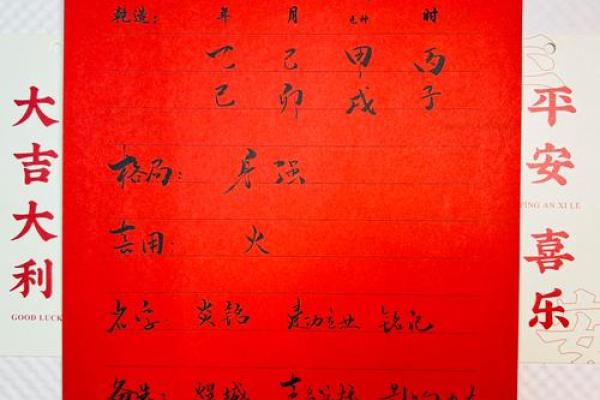 乾造: 年 月 时
乙 己 甲 丙
巳 卯 戌 子
格局: 身强
喜用: 火
名字 炎铭 建功立业 铭记
备选:
大吉大利
GOOD LUCK
平安喜乐
PING AN XI LE